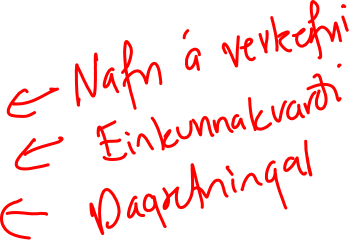 ← Nafn á verkefni
← Einkunnakvarði
← Dagsetningal